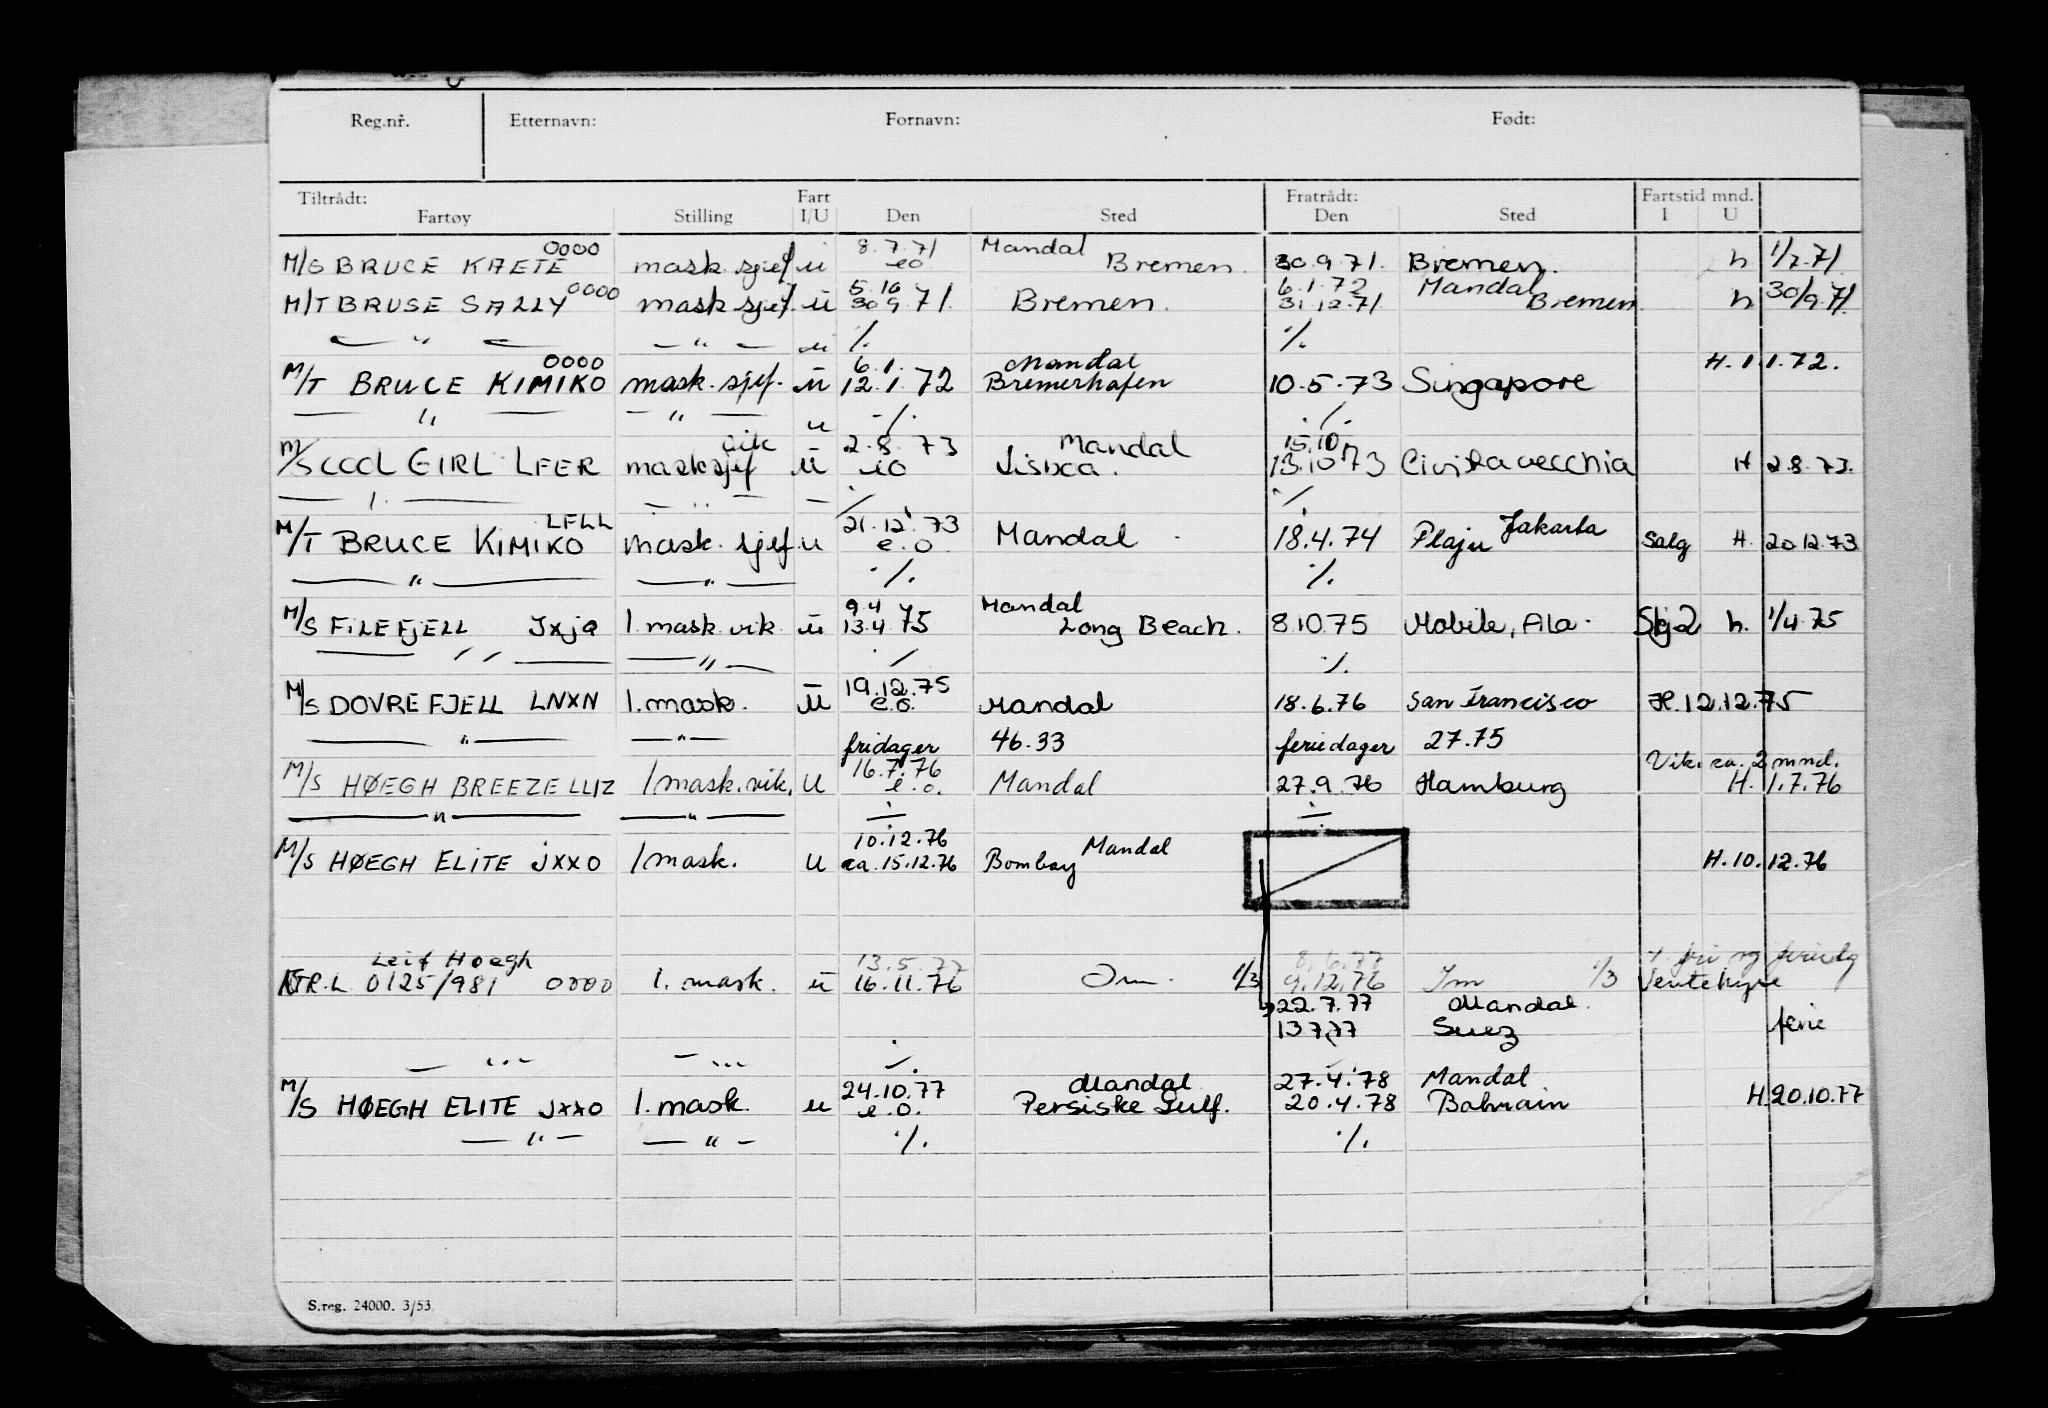 Reg.nr. Etternavn: Fornavn: Født:
Tiltrådt: Fart Fratrådt: Fartstid mnd.
Fartøy Stilling I/U Den Sted Den Sted I U
0000 8.7.71 Mandal
M/S BRUCE KAETE mask sjef u eo Bremen. 30.9.71. Bremen. h 1/7.71.
0000 5.10 6.1.72 Mandal
M/T BRUSE SALLY mask sjef. u 30 9 71. Bremen. 31.12.71 Bremen. h 30/9.71.
— " — — " — u ./. ./.
0000 6.1. Mandal H. 1.1.72.
M/T BRUCE KIMIKO mask. sjef. u 12.1.72 Bremerhafen 10.5.73 Singapore
— " — — " — u ./. ./.
vik 2.8.73 Mandal 15.10
M/S COOL GIRL LFER masksjef u eo 13.10 73 Civitavecchia H 2.8.73.
LFLL 21.12.73 Jakarta
M/T BRUCE KIMIKO mask. sjef. u e.o. Mandal 18.4.74 Plaju Salg H. 20.12.73
— " — — " — ./. ./.
9.4 Mandal
M/S FILEFJELL JXJQ 1. mask. vik. u 13.4 75 Long Beach. 8.10.75 Mobile, Ala. h. 1/4.75
— " — — " — ./. ./.
19.12.75
M/S DOVREFJELL LNXN 1. mask. u e.o. Mandal 18.6.76 San Francisco H. 12.12.75
— " — — " — fridager 46.33 feriedager 27.75
16.7.76 Vik. ca. 2 mnd.
M/S HØEGH BREEZE LLIZ 1 mask. vik. u e.o. Mandal 27.9.76 Hamburg H. 1.7.76
— " — — " — ./. ./.
10.12.76 Mandal
M/S HØEGH ELITE JXXO 1 mask. u ca. 15.12.76 Bombay H. 10.12.76
Leif Hoegh 13.5.77 8.6.77
KTR.L 0125/981 0000 1. mask. u 16.11.76 1/3 9.12.76 1/3 Ventehyre
22.7.77 Mandal.
13 7 77 Suez ferie
24.10.77 Mandal 27.4.78 Mandal
M/S HØEGH ELITE JXXO 1. mask. u e.o. Persiske Gulf. 20.4.78 Bahrain H. 20.10.77
— " — — " — ./. ./.
S.reg. 24000. 3/53.